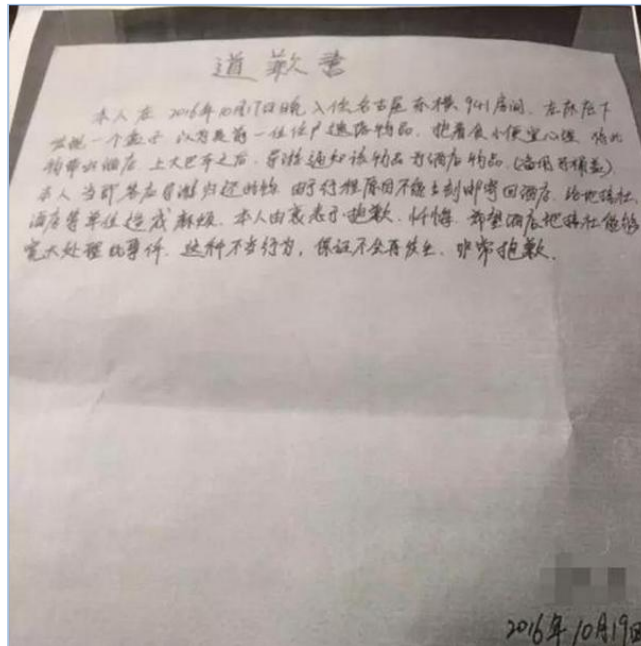 道歉书
本人在2016年10月17日晚入住名古屋东横941房间，在床底下
发现一个盒子，以为是前一位住户遗落物品，抱着贪小便宜心理，将此
物带出酒店，上大巴车之后，导游通知该物品为酒店物品。（备用马桶盖）
本人当即答应导游归还时，由于行程原因不能立刻邮寄回酒店，给地接社，
酒店等单位造成麻烦，本人由衷表示抱歉，忏悔，希望酒店地接社能够
宽大处理此事件，这种不当行为，保证不会再发生，非常抱歉。
2016年10月19日